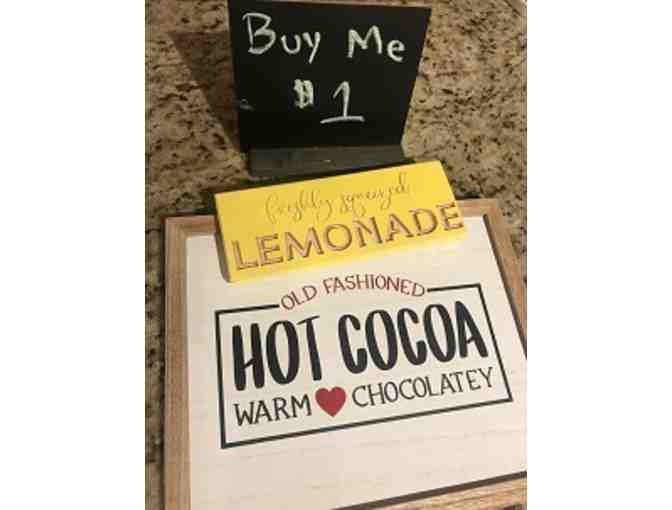 Buy Me
$1
freshly squeezed
LEMONADE
OLD FASHIONED
HOT COCOA
WARM CHOCOLATEY